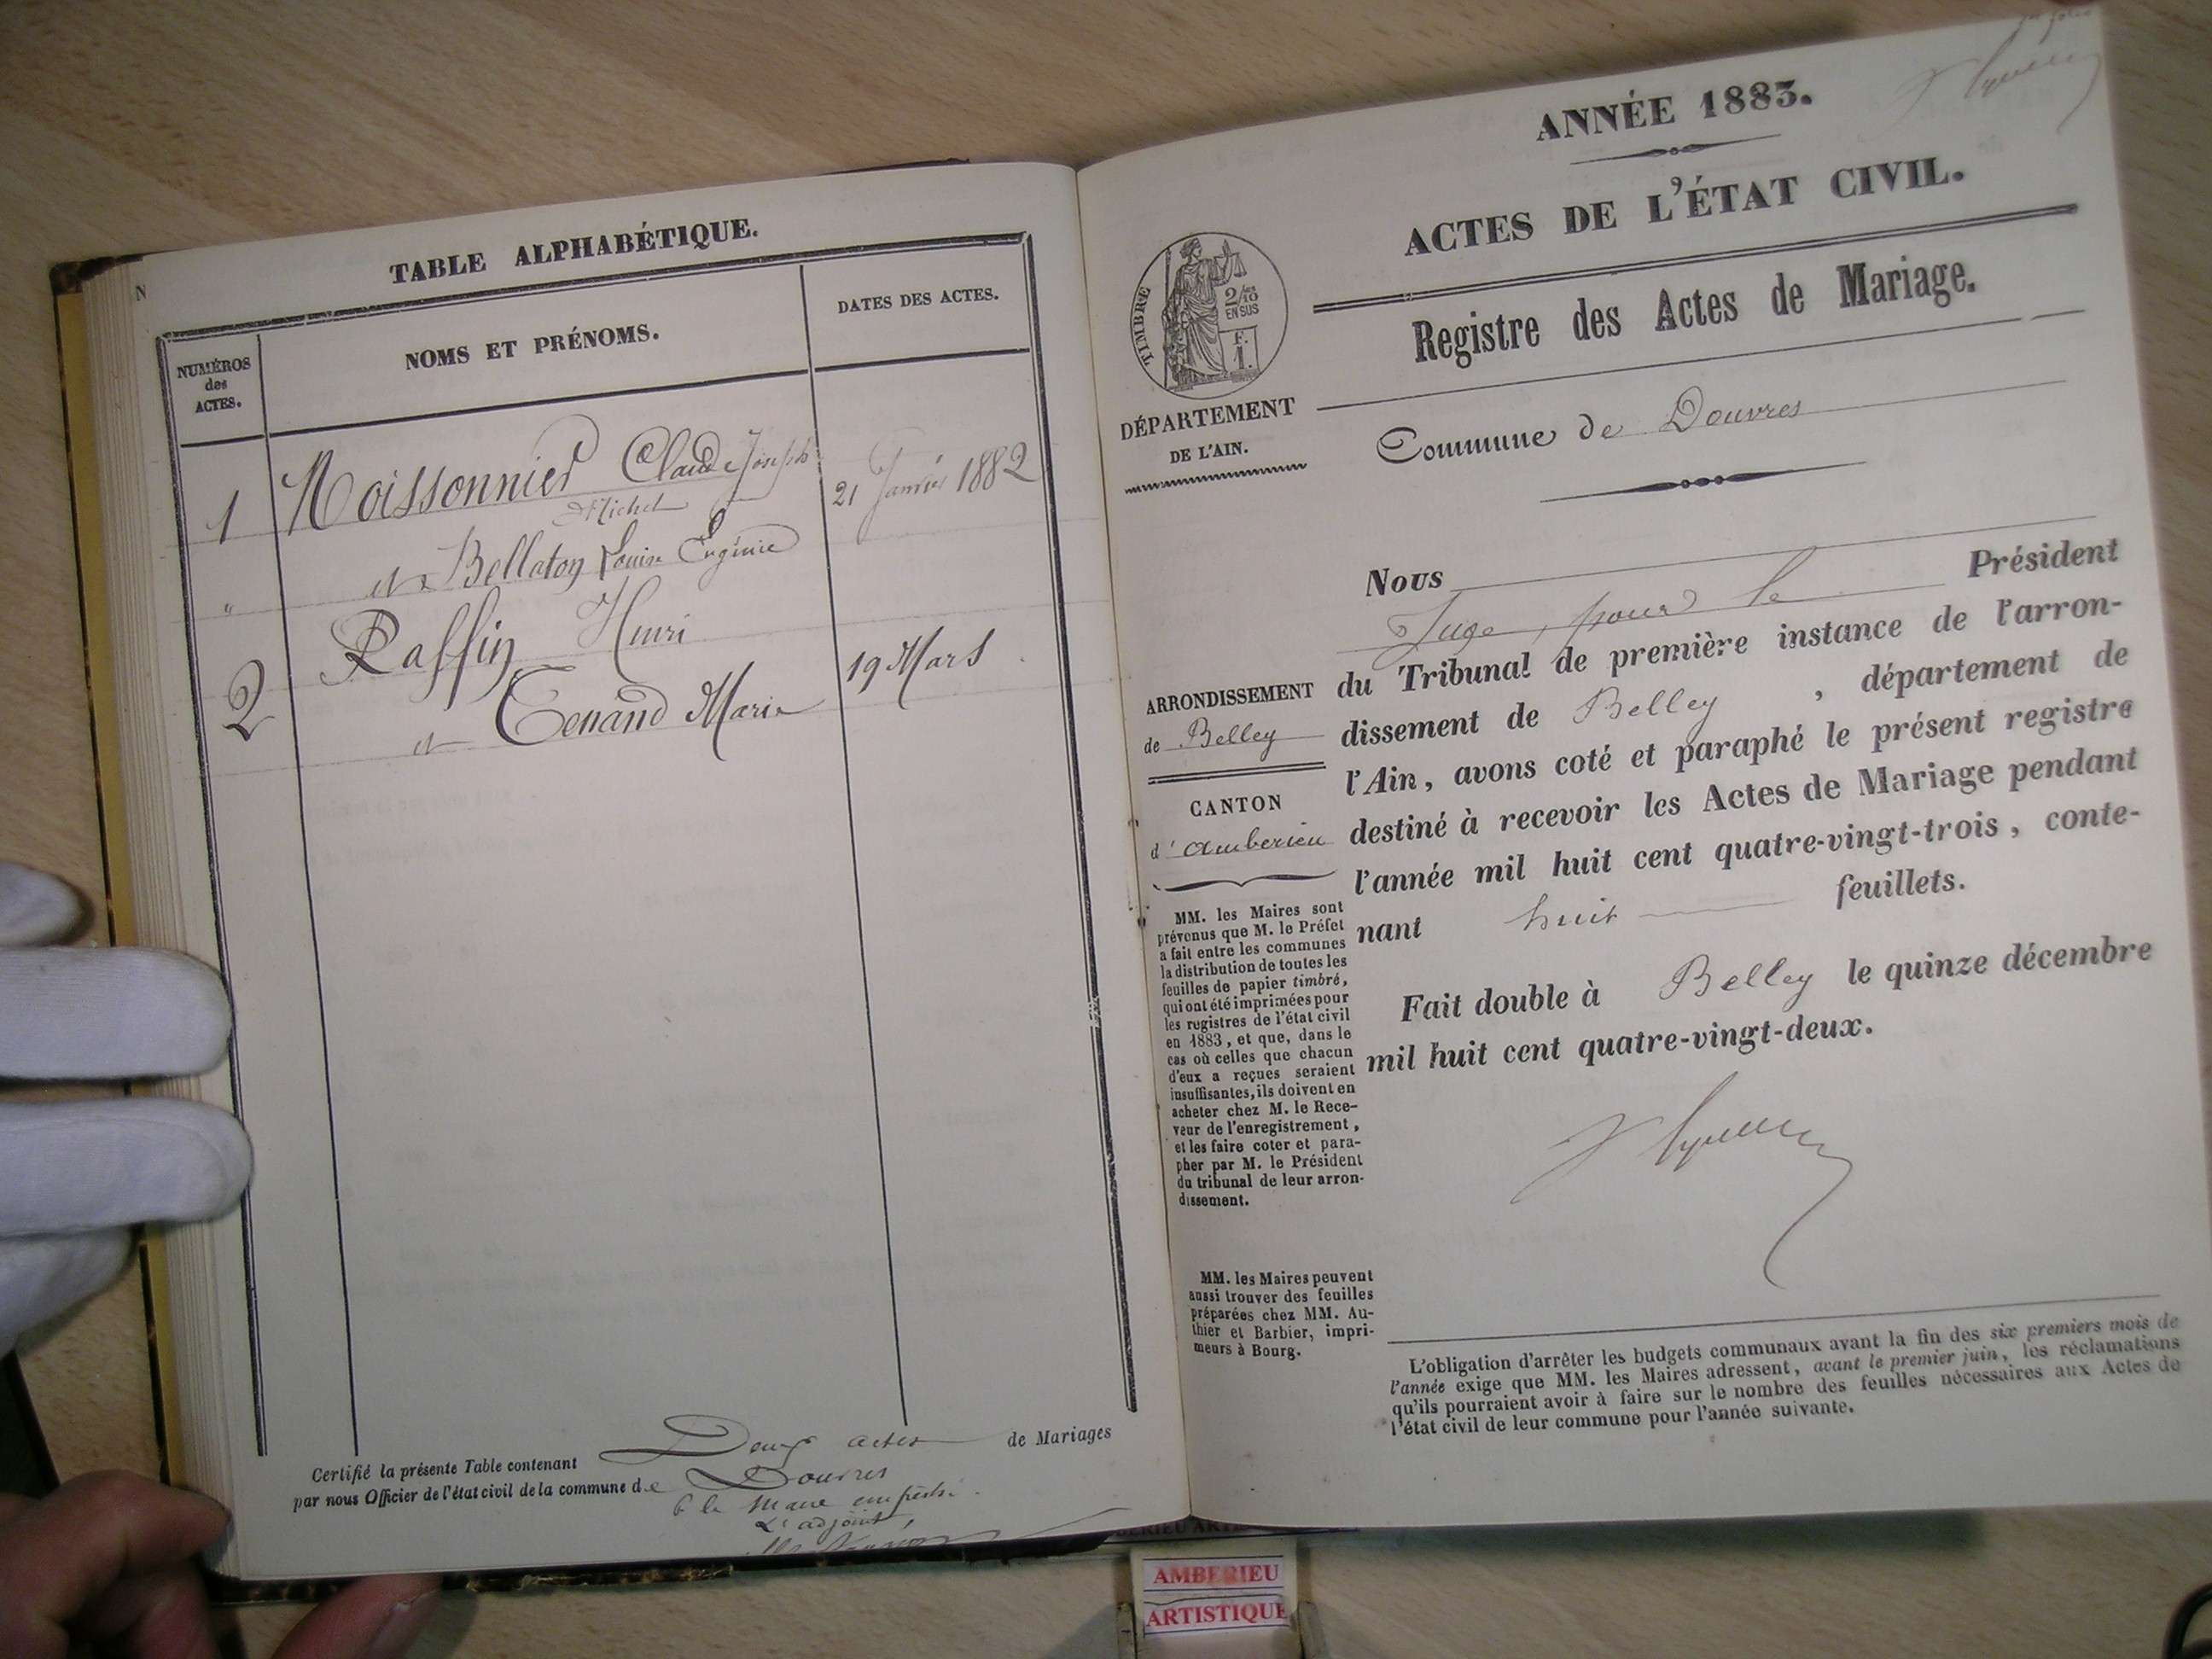 N
TABLE ALPHABÉTIQUE.
NUMÉROS
des
ACTES.
NOMS ET PRÉNOMS.
DATES DES ACTES.
1 Moissonnier Claude Joseph 21 Janvier 1882
Michel
" et Bellaton Louise Eugénie
2 Raffin Henri 19 Mars
et Tenand Marie
Certifié la présente Table contenant Deux actes de Mariages
par nous Officier de l'état civil de la commune de Douvres
le Maire empêché
L'adjoint,
ANNÉE 1883.
ACTES DE L'ÉTAT CIVIL.
Registre des Actes de Mariage.
TIMBRE
2/10
EN SUS
F.
1.
DÉPARTEMENT
DE L'AIN.
Commune de Douvres
Nous
Juge, pour le Président
du Tribunal de première instance de l'arron-
dissement de Belley, département de
l'Ain, avons coté et paraphé le présent registre
destiné à recevoir les Actes de Mariage pendant
l'année mil huit cent quatre-vingt-trois, conte-
nant huit feuillets.
Fait double à Belley le quinze décembre
mil huit cent quatre-vingt-deux.
ARRONDISSEMENT
de Belley
CANTON
d'Amberieu
MM. les Maires sont
prévenus que M. le Préfet
a fait entre les communes
la distribution de toutes les
feuilles de papier timbré,
qui ont été imprimées pour
les registres de l'état civil
en 1883, et que, dans le
cas où celles que chacun
d'eux a reçues seraient
insuffisantes, ils doivent en
acheter chez M. le Rece-
veur de l'enregistrement,
et les faire coter et para-
pher par M. le Président
du tribunal de leur arron-
dissement.
MM. les Maires peuvent
aussi trouver des feuilles
préparées chez MM. Au-
thier et Barbier, impri-
meurs à Bourg.
L'obligation d'arrêter les budgets communaux avant la fin des six premiers mois de
l'année exige que MM. les Maires adressent, avant le premier juin, les réclamations
qu'ils pourraient avoir à faire sur le nombre des feuilles nécessaires aux Actes de
l'état civil de leur commune pour l'année suivante.
AMBERIEU
ARTISTIQUE